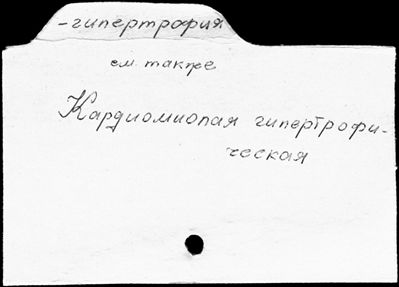 -гипертрофия
см. также
Кардиомиопая гипертрофи-
ческая